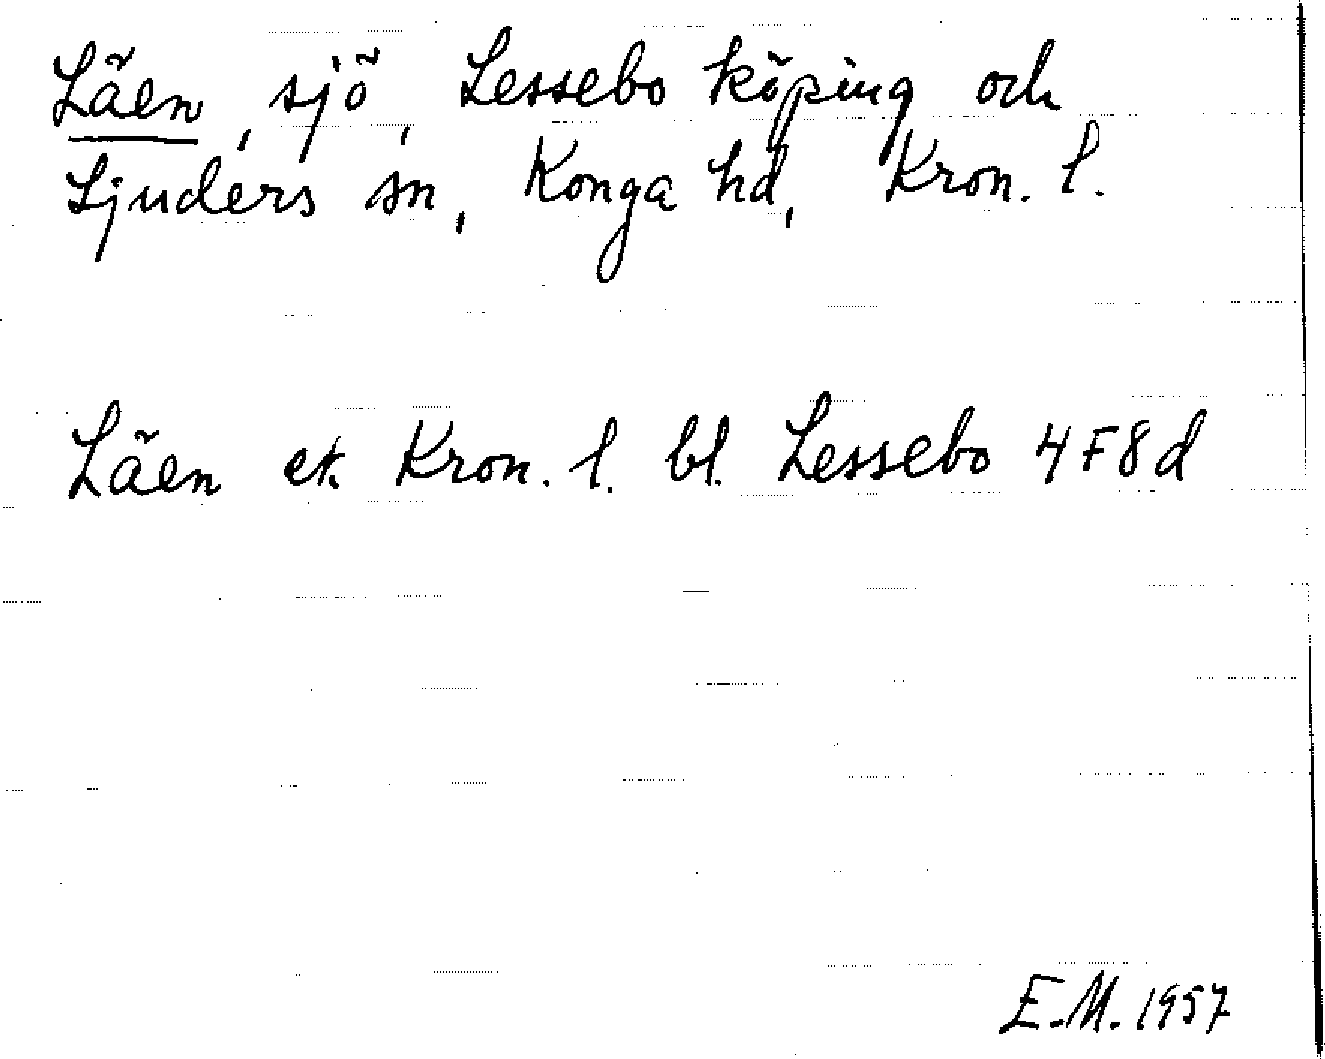 Läen, sjö, Lessebo köping och
Ljuders sn, Konga hd, Kron. l.
Läen ek Kron. l. bl. Lessebo 4F8d
E.M. 1957